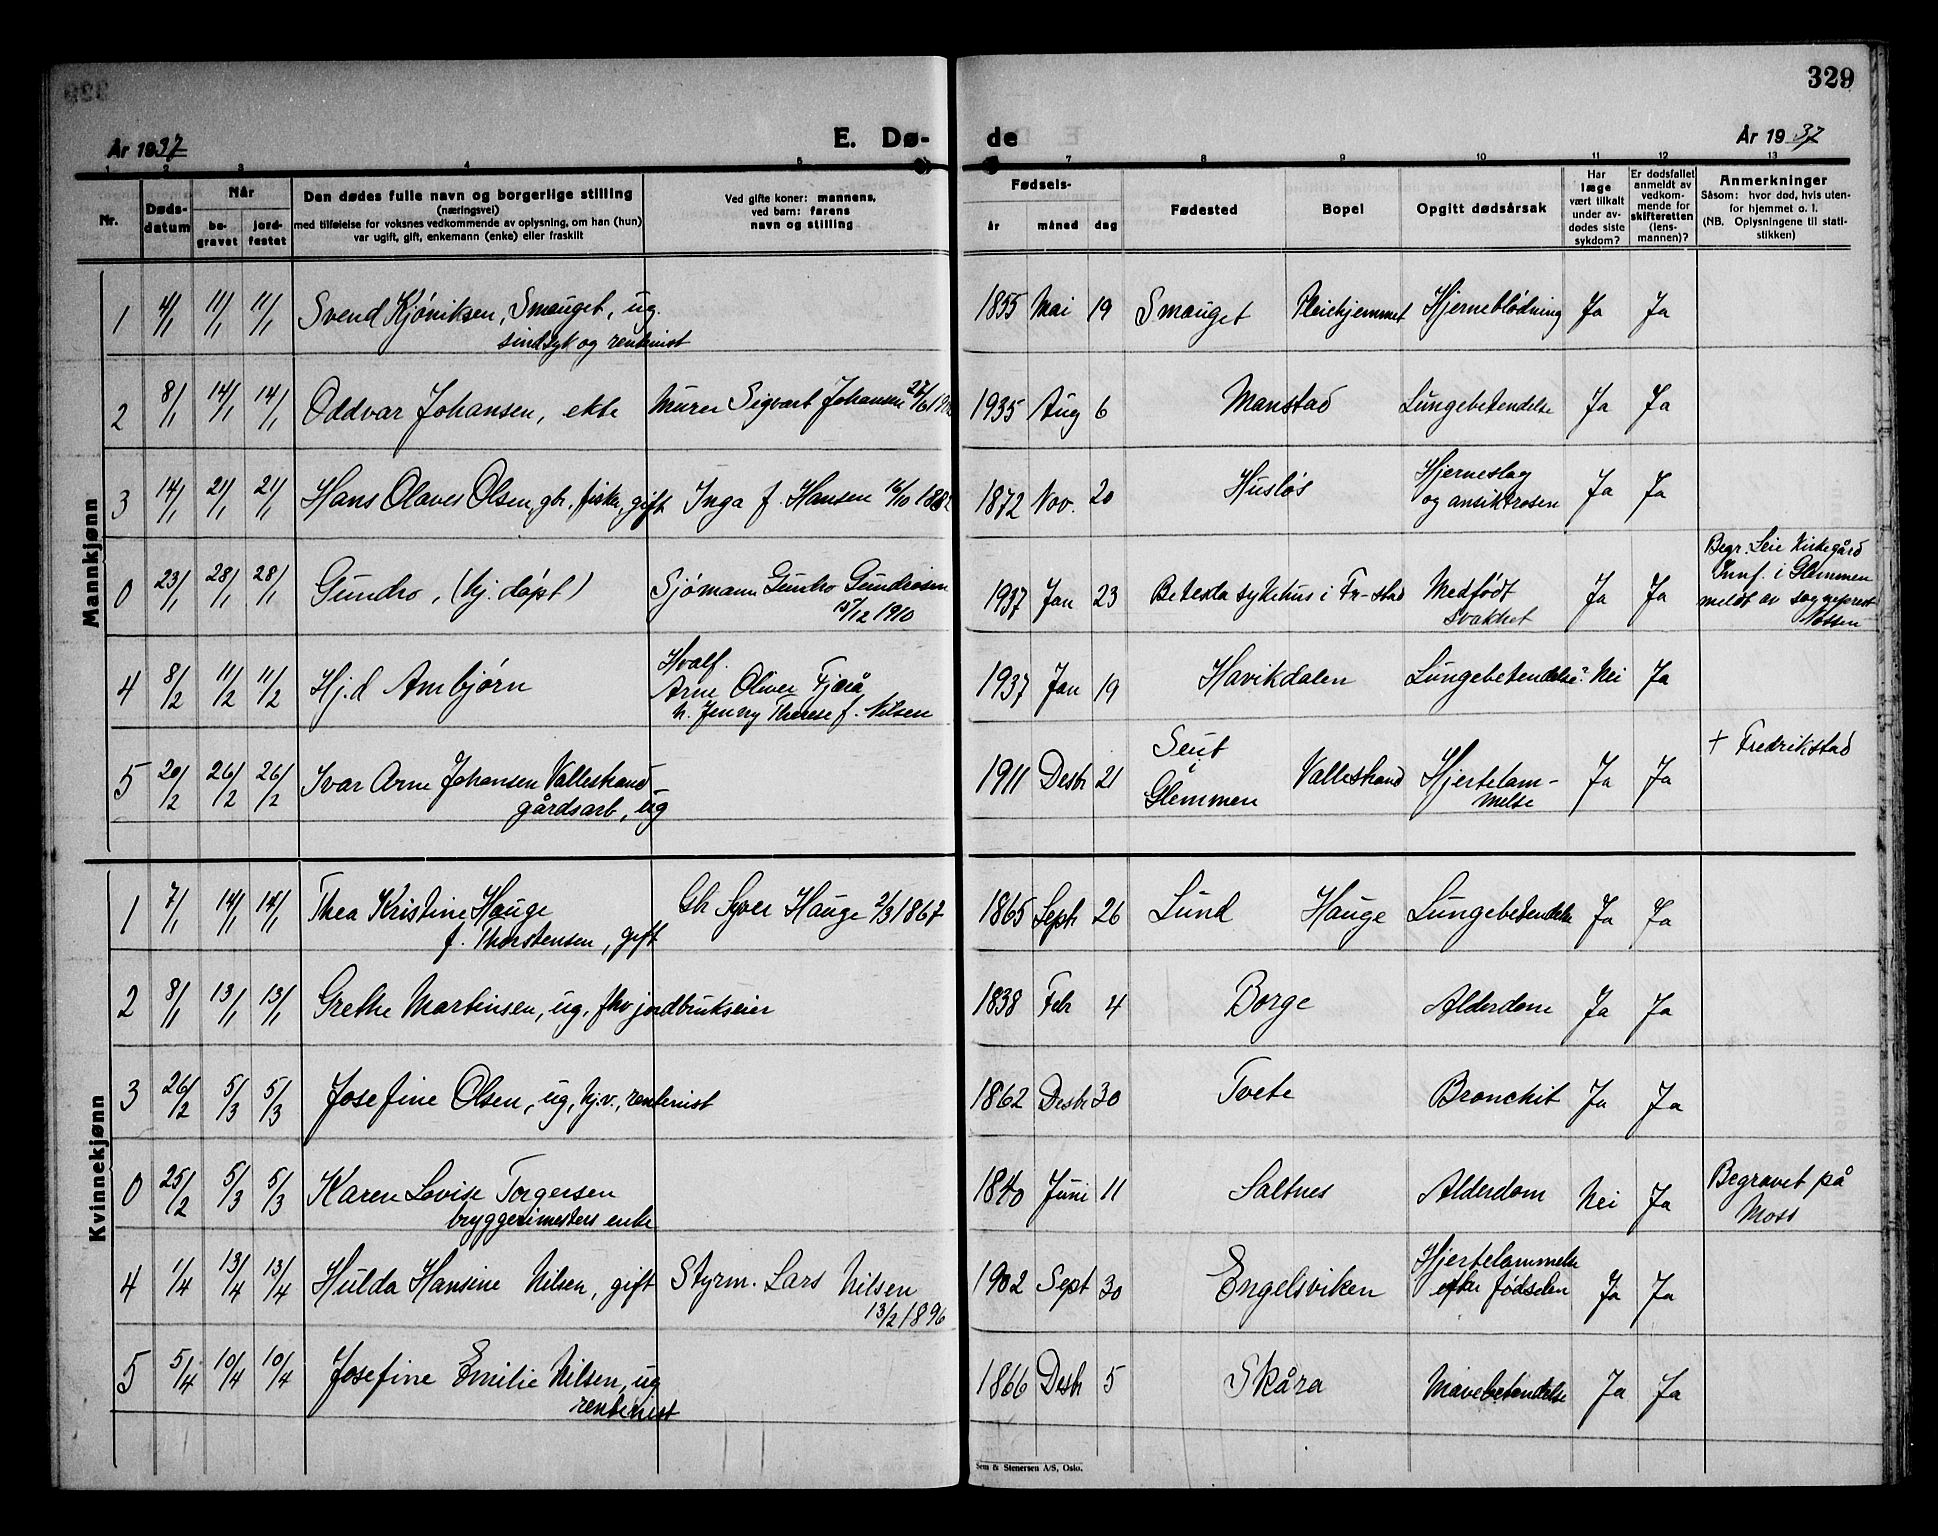 329
År 1937
E. Dø-
de
År 1937
1 2 3 4 5 7 8 9 10 11 12 13
Nr.
Døds-
datum
Når
be-
gravet
jord-
festet
Den dødes fulle navn og borgerlige stilling
(næringsvei)
med tilføielse for voksnes vedkommende av oplysning, om han (hun)
var ugift, gift, enkemann (enke) eller fraskilt
Ved gifte koner: mannens,
ved barn: farens
navn og stilling
Fødsels-
år måned dag
Fødested
Bopel
Opgitt dødsårsak
Har
læge
vært tilkalt
under av-
dødes siste
sykdom?
Er dødsfallet
anmeldt av
vedkom-
mende for
skifteretten
(lens-
mannen)?
Anmerkninger
Såsom: hvor død, hvis uten-
for hjemmet o. l.
(NB. Oplysningene til stati-
stikken)
Mannkjønn
1 4/1 11/1 11/1 Svend Kjöniksen, Smauget, ug. 1855 Mai 19 Smauget Pleiehjemmet Hjerneblödning Ja Ja
sindsyk og rentenist
2 8/1 14/1 14/1 Oddvar Johansen, ekte Murer Sigvart Johansen 27/6 1935 Aug 6 Manstad Lungebetendelse Ja Ja
3 14/1 21/1 21/1 Hans Olaves Olsen, gbr. fisker, gift Inga f. Hansen 16/10 1882 1872 Nov. 20 Huslös Hjerneslag
og ansiktrosen Ja Ja
0 23/1 28/1 28/1 Gundro, (hj. döpt) Sjömann Gundro Gundrosen
15/12 1910 1937 Jan 23 Betesda sykehus i Fr-stad Medfödt
svakhet Ja Ja
Begr. Leie Kirkegård
Innf. i Glemmen
meldt av sogneprest
4 8/2 11/2 11/2 Hj.d Arnbjørn Hvalf.
Arne Oliver Fjærå
h. Jenny Therese f. Nilsen 1937 Jan 19 Havikdalen Lungebetendelse? Nei Ja
5 20/2 26/2 26/2 Ivar Arne Johansen Vallestrand
gårdsarb, ug 1911 Desbr 21 Seut
Glemmen Vallestrand Hjertelam-
melse Ja Ja + Fredrikstad
Kvinnekjønn
1 7/1 14/1 14/1 Thea Kristine Hauge
f. Thorstensen, gift Gbr Syver Hauge 2/3 1867 1865 Septr 26 Lund Hauge Lungebetendelse Ja Ja
2 8/1 13/1 13/1 Grethe Martinsen, ug, fhv jordbrukseier 1838 Febr 4 Borge Alderdom Ja Ja
3 26/2 5/3 5/3 Josefine Olsen, ug, hj.v., rentenist 1862 Desbr 30 Tvete Bronchit Ja Ja
0 25/2 5/3 5/3 Karen Lovise Torgersen
bryggerimesters enke 1840 Juni 11 Saltnes Alderdom Nei Ja Begravet på
Moss
4 1/4 13/4 13/4 Hulda Hansine Nilsen, gift Styrm. Lars Nilsen
13/2 1896 1902 Sept 30 Engelsviken Hjertelammelse
efter fødselen Ja Ja
5 5/4 10/4 10/4 Josefine Emilie Nilsen, ug
rentenist 1866 Desbr 5 Skåra Mavebetendelse Ja Ja
Sem & Stenersen A/S, Oslo.